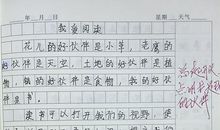 年 月 日 星期 天气
我爱阅读
花儿的好伙伴是小草，老鹰的
好伙伴是天空，土地的好伙伴是植
物，脑的好伙伴是食物，我的好伙
伴是书。
读书可以打开我们的视野，使